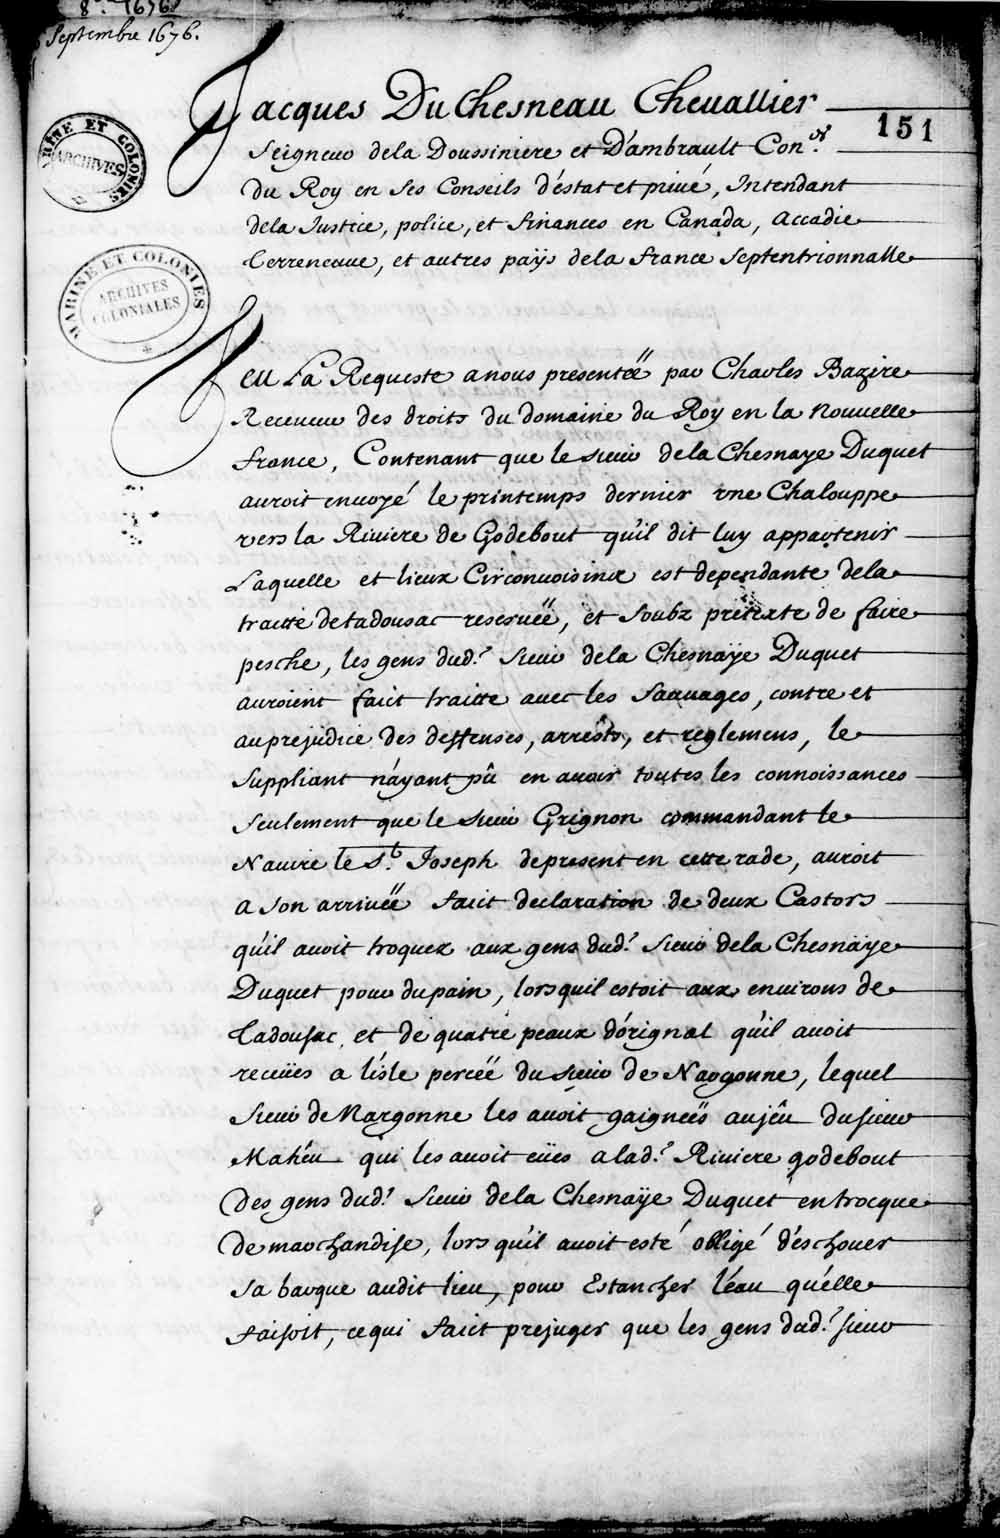 8.e 1676
Septembre 1676.
151
MARINE ET COLONIES
ARCHIVES
MARINE ET COLONIES
ARCHIVES
COLONIALES
Jacques DuChesneau Cheuallier
Seigneur dela Doussiniere et D'ambrault Con.er
du Roy en ses Conseils d'éstat et priué, Intendant
dela Justice, police, et finances en Canada, accadie
Terreneuue, et autres païs dela france Septentrionnalle
Veu La Requeste a nous presenteë par Charles Bazire
Receueur des droits du domaine du Roy en la nouuelle
france, Contenant que le sieur dela Chesnaye Duquet
auroit enuoyé le printemps dernier vne Chalouppe
vers la Riuiere de Godebout qu'il dit luy appartenir
Laquelle et lieux Circonuoisins est dependante dela
traitte de tadousac reserueë, et soubz pretexte de faire
pesche, les gens dud.t Sieur dela Chesnaÿe Duquet
auroient faict traitte auec les sauuages, contre et
au prejudice des deffenses, arrests, et reglemens, le
suppliant n'ayant pû en auoir toutes les connoissances
seulement que le sieur Grignon commandant le
Nauire le S.t Joseph de present en cette rade, auroit
a son arriueë faict declaration de deux Castors
qu'il auoit troquez aux gens dud.t sieur dela Chesnaÿe
Duquet pour du pain, lorsquil estoit aux enuirons de
Tadousac, et de quatre peaux d'órignal qu'il auoit
receües a l'isle perceë du sieur de Nargonne, lequel
Sieur de Nargonne les auoit gaigneës au jêu du sieur
Mahêu qui les auoit eües a lad.t Riuiere godebout
Des gens dud.t Sieur dela Chesnaÿe Duquet en trocque
de marchandise, lors qu'il auoit esté obligé d'éschouer
sa barque audit lieu, pour Estancher l'éau qu'élle
faisoit, ce qui faict prejuger que les gens dud.t sieur